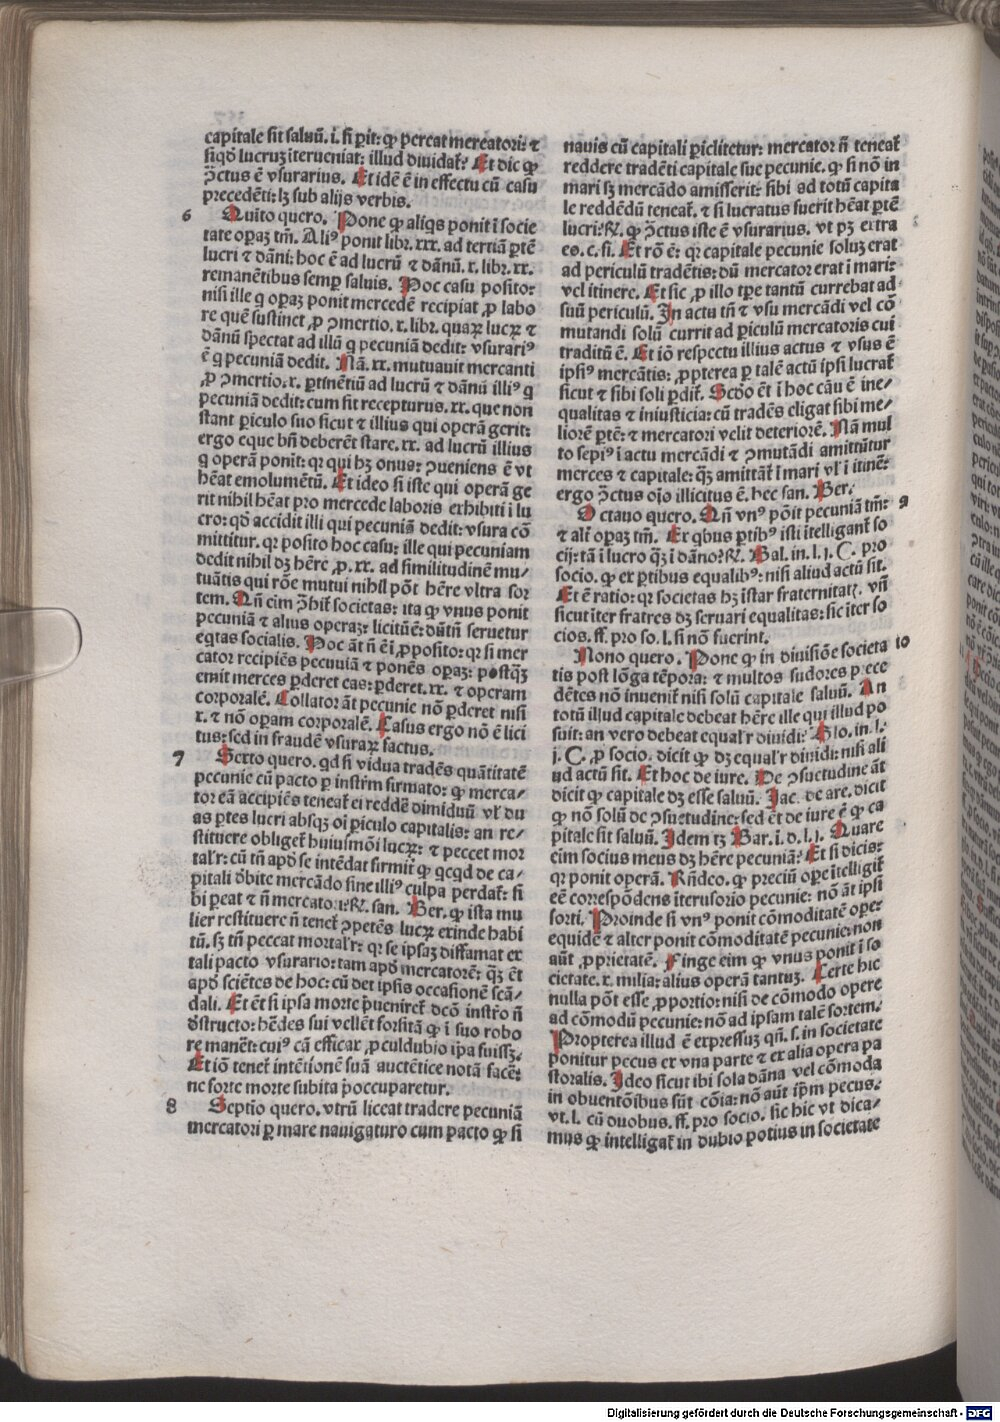 capitale sit saluū. i. si ꝑit: ꝙ pereat mercatori: ⁊
siqđ lucruꝫ īterueniat: illud diuidat̄? Et dic ꝙ
ꝯctus ē vsurarius. Et idē ē in effectu cū casu
precedēti: lꝫ sub alijs verbis.
6 Quito quero. Pone ꝙ aliqs ponit ī socie
tate oꝑaꝫ tm̄. Aliꝰ ponit libr. xxx. ad tertiā ꝑtē
lucri ⁊ dāni: hoc ē ad lucrū ⁊ dānū. x. libr. xx.
remanētibus semꝑ saluis. Hoc casu posito:
nisi ille q oꝑaꝫ ponit mercedē recipiat ꝓ labo
re quē sustinet ꝓ ꝯmertio. x. libr. quaꝝ lucꝝ ⁊
dānū spectat ad illū q pecuniā dedit: vsurariꝰ
ē q pecuniā dedit. Nā. xx. mutuauit mercanti
ꝓ ꝯmertio. x. ꝑtinētiū ad lucrū ⁊ dānū illiꝰ q
pecuniā dedit: cum sit recepturus. xx. que non
stant ꝑiculo suo sicut ⁊ illius qui operā gerit:
ergo eque bn̄ deberēt stare. xx. ad lucrū illius
q operā ponit: qꝛ qui hꝫ onus: ꝯueniens ē vt
hēat emolumētū. Et ideo si iste qui operā ge
rit nihil hēat pro mercede laboris exhibiti ī lu
cro: qđ accidit illi qui pecuniā dedit: vsura cō
mittitur. qꝛ posito hoc casu: ille qui pecuniam
dedit nihil dꝫ hēre ꝓ. xx. ad similitudinē mu/
tuātis qui rōe mutui nihil pōt hēre vltra sor
tem. Nō eīm ꝓhibet̄ societas: ita ꝙ vnus ponit
pecuniā ⁊ alius operaꝫ: licitū ē: dūtn̄ seruetur
eqtas socialis. Hoc āt n̄ ē ī ꝓposito: qꝛ si mer
cator recipiēs pecuniā ⁊ ponēs oꝑaꝫ: postqꝫ
emit merces ꝑderet eas: ꝑderet. xx. ⁊ operam
corporalē. Collator āt pecunie nō ꝑderet nisi
x. ⁊ nō oꝑam corporalē. Casus ergo nō ē lici
tus: sed in fraudē vsuraꝝ factus.
7 Sexto quero. qd si vidua tradēs quātitatē
pecunie cū pacto ꝑ instr̄m firmato: ꝙ merca/
tor eā accipiēs teneat̄ ei reddē dimidiuū vl̄ du
as ꝑtes lucri absqꝫ oī ꝑiculo capitalis: an re/
stituere obliget̄ huiusmōi lucꝝ: ⁊ peccet mor
tal'r: cū tn̄ apđ se intēdat firmit̄ ꝙ qcqd de ca/
pitali dbite mercādo sine illiꝰ culpa perdat̄: si
bi ꝑeat ⁊ n̄ mercatori: ꝶ. san. Ber. ꝙ ista mu
lier restituere n̄ tenet̄ ꝯpetēs lucꝝ exinde habi
tū. sꝫ tn̄ peccat mortal'r: qꝛ se ipsaꝫ diffamat ex
tali pacto vsurario: tam apđ mercatorē: qꝫ ēt
apđ sciētes de hoc: cū det ipsis occasionē scā/
dali. Et ēt si ipsa morte p̄ueniret̄ dcō instrō n̄
dstructo: hēdes sui vellēt forsitā ꝙ ī suo robo
re manēt: cuiꝰ cā efficax ꝓculdubio ipa fuissꝫ.
Et iō tenet̄ intētionē suā auctētice notā facē:
ne forte morte subita p̄occuparetur.
8 Septīo quero. vtrū liceat tradere pecuniā
mercatori ꝑ mare nauigaturo cum pacto ꝙ si
nauis cū capitali ꝑiclitetur: mercator n̄ teneat̄
reddere tradēti capitale sue pecunie. ꝙ si nō in
mari sꝫ mercādo amisserit: sibi ad totū capita
le reddēdū teneat̄. ⁊ si lucratus fuerit hēat ꝑtē
lucri: ꝶ. ꝙ ꝯctus iste ē vsurarius. vt pꝫ extra
eo. c. fi. Et rō ē: qꝛ capitale pecunie soluꝫ erat
ad periculū tradētis: dū mercator erat ī mari:
vel itinere. Et sic ꝓ illo tꝑe tantū currebat ad
suū periculū. In actu tn̄ ⁊ vsu mercādi vel cō
mutandi solū currit ad ꝑiculū mercatoris cui
traditū ē. Et iō respectu illius actus ⁊ vsus ē
ipsiꝰ mercātis: ꝓpterea ꝑ talē actū ipsi lucrat̄
sicut ⁊ sibi soli ꝑdit̄. Scđo ēt ī hoc cāu ē ine/
qualitas ⁊ iniusticia: cū tradēs eligat sibi me/
liorē ꝑtē: ⁊ mercatori velit deteriorē. Nā mul
to sepiꝰ ī actu mercādi ⁊ ꝯmutādi amittūtur
merces ⁊ capitale: qꝫ amittāt̄ ī mari vl' ī itinē:
ergo ꝯctus oīo illicitus ē. hec san. Ber.
9 Octauo quero. Qn̄ vnꝰ pōit pecuniā tm̄:
⁊ alt̄ oꝑaꝫ tm̄. Ex qbus ꝑtibꝰ isti ītelligant̄ so
cij: tā ī lucro qꝫ ī dāno? ꝶ. Bal. in. l. j. C. pro
socio. ꝙ ex ꝑtibus equalibꝰ: nisi aliud actū sit.
Et ē ratio: qꝛ societas hꝫ īstar fraternitat̄. vn̄
sicut īter fratres dꝫ seruari equalitas: sic īter so
cios. ff. pro so. l. si nō fuerint.
10 Nono quero. Pone ꝙ in diuisiōe societa
tis post lōga tēpora: ⁊ multos sudores p̄ece
dētes nō inuenit̄ nisi solū capitale saluū. An
totū illud capitale debeat hēre ille qui illud po
suit: an vero debeat equal'r diuidi? Glo. in. l.
j. C. ꝓ socio. dicit ꝙ dꝫ equal'r diuidi: nisi ali
ud actū sit. Et hoc de iure. De ꝯsuetudine āt
dicit ꝙ capitale dꝫ esse saluū. Jac. de are. dicit
ꝙ nō solū de ꝯsuetudine: sed ēt de iure ē ꝙ ca
pitale sit saluū. Idem tꝫ Bar. ī. d. l. j. Quare
eīm socius meus dꝫ hēre pecuniā? Et si dicis:
qꝛ ponit operā. Rn̄deo. ꝙ preciū oꝑe ītelligit̄
eē correspōdens īterusorio pecunie: nō āt ipsi
sorti. Proinde si vnꝰ ponit cōmoditatē oper
equidē ⁊ alter ponit cōmoditatē pecunie: non
aūt ꝓprietatē. Finge eīm ꝙ vnus ponit ī so
cietate. x. milia: alius operā tantuꝫ. Certe hic
nulla pōt esse ꝓportio: nisi de cōmodo opere
ad cōmodū pecunie: nō ad ipsam talē sortem.
Propterea illud ē expressuꝫ qn̄. s. in societate
ponitur pecus ex vna parte ⁊ ex alia opera pa
storalis. Ideo sicut ibi sola dāna vel cōmoda
in obuentōibus sūt cōia: nō aūt ipm̄ pecus.
vt. l. cū duobus. ff. pro socio. sic hic vt dica/
mus ꝙ intelligat̄ in dubio potius in societate
Digitalisierung gefördert durch die Deutsche Forschungsgemeinschaft - DFG